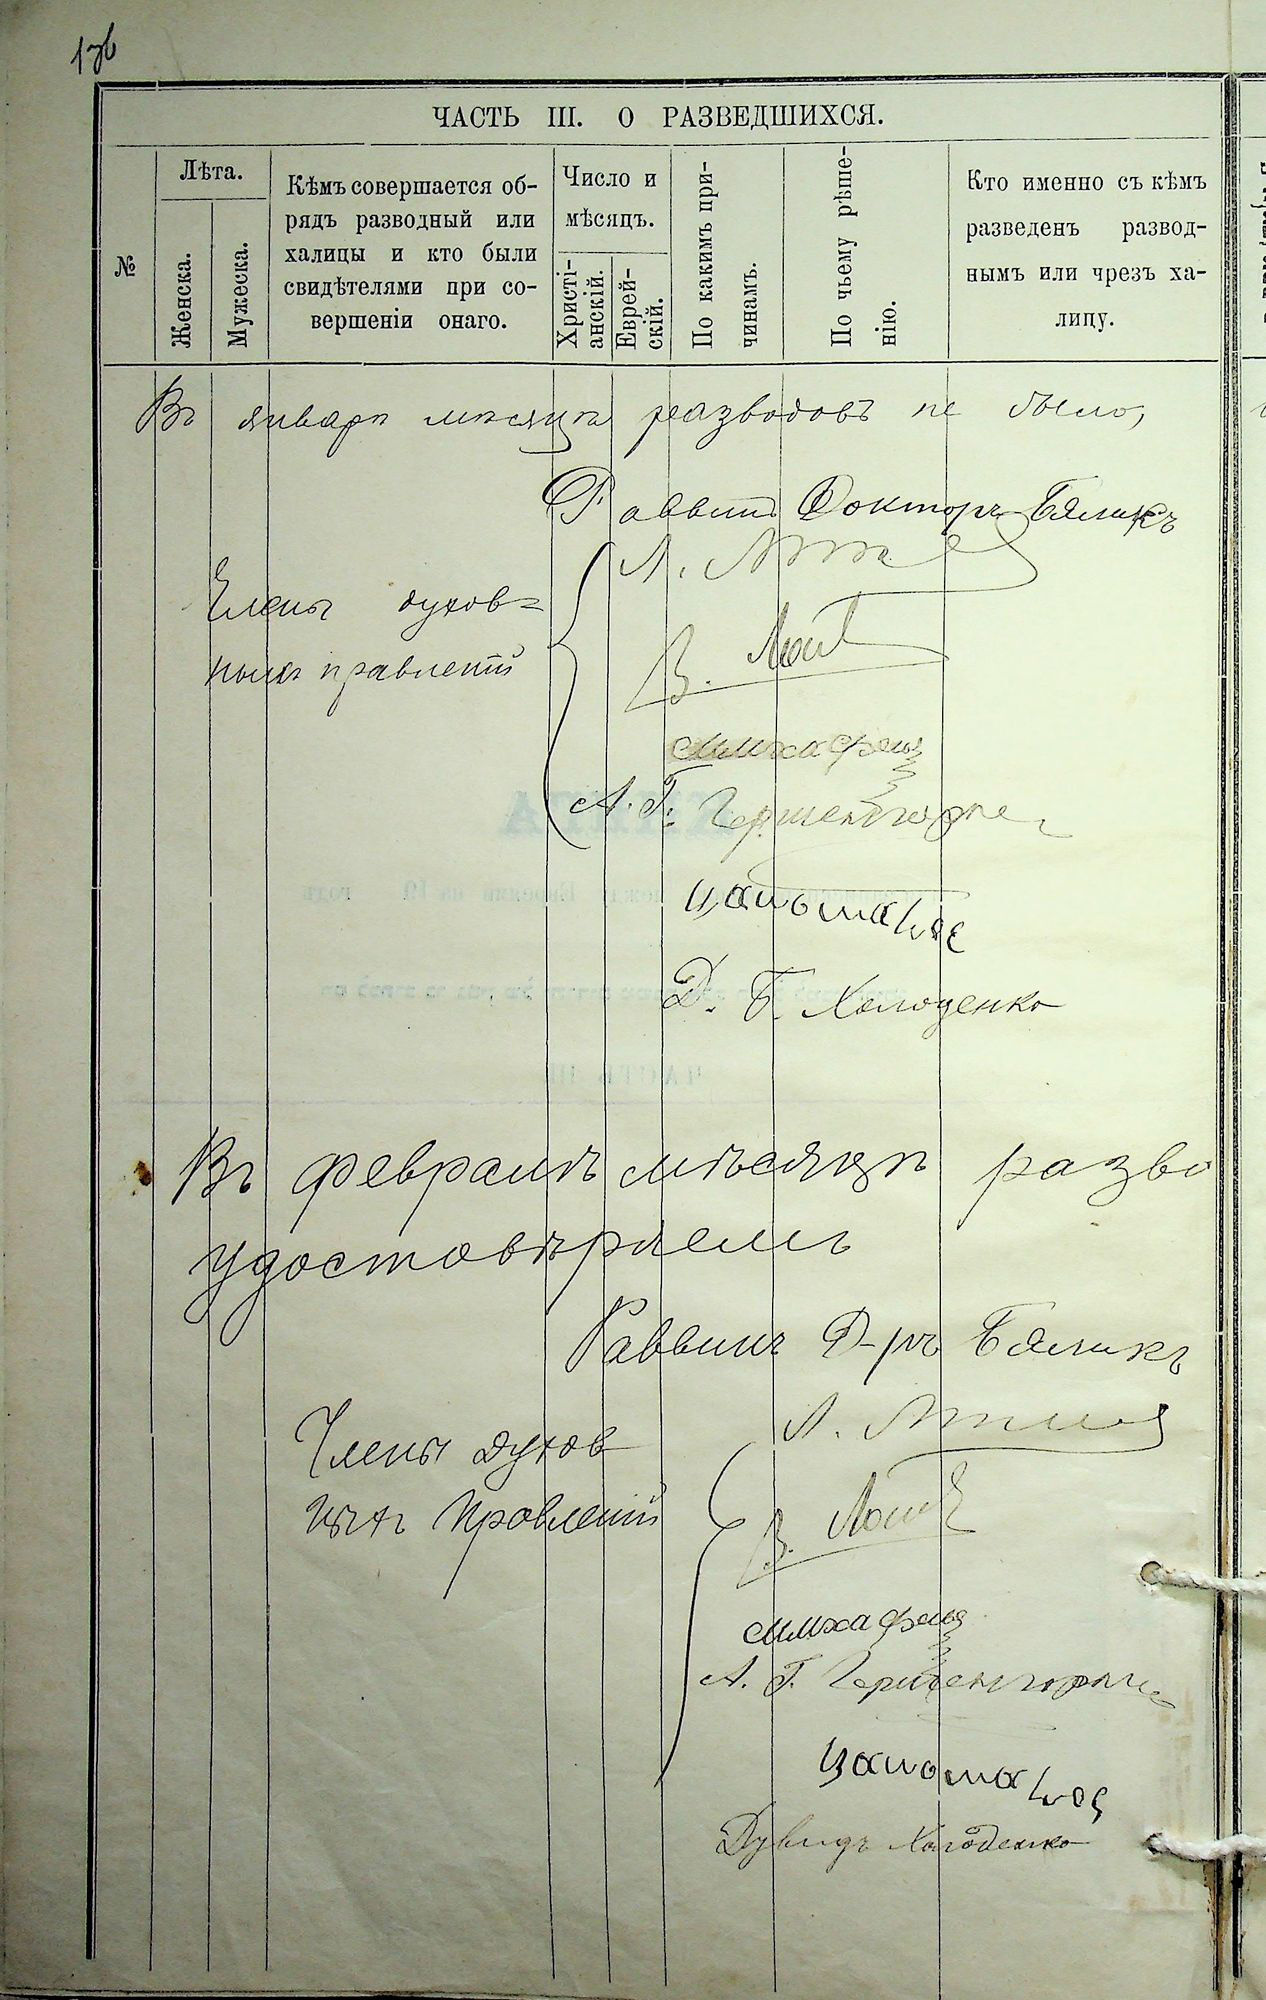 ЧАСТЬ III. О РАЗВЕДШИХСЯ.
№
Лѣта.
Женска.
Мужеска.
Кѣмъ совершается об-
рядъ разводный или
халицы и кто были
свидѣтелями при со-
вершеніи онаго.
Число и
мѣсяцъ.
Христі-
анскій.
Еврей-
скій.
По какимъ при-
чинамъ.
По чьему рѣше-
нію.
Кто именно съ кѣмъ
разведенъ развод-
нымъ или чрезъ ха-
лицу.
Въ январѣ мѣсяцѣ разводовъ не было,
Раввинъ Докторъ Бяликъ
Члены духов=
ныхъ правленій
симха фельд
А. Г. Гершенгорне
Д. Б. Холоденко
Въ февралѣ мѣсяцѣ разво
удостовѣряемъ
Раввинъ Д-ръ Бяликъ
Члены духов
ныхъ Правленій
симха фельд
А. Г. Гершенгорне
Дувидъ Холоденко